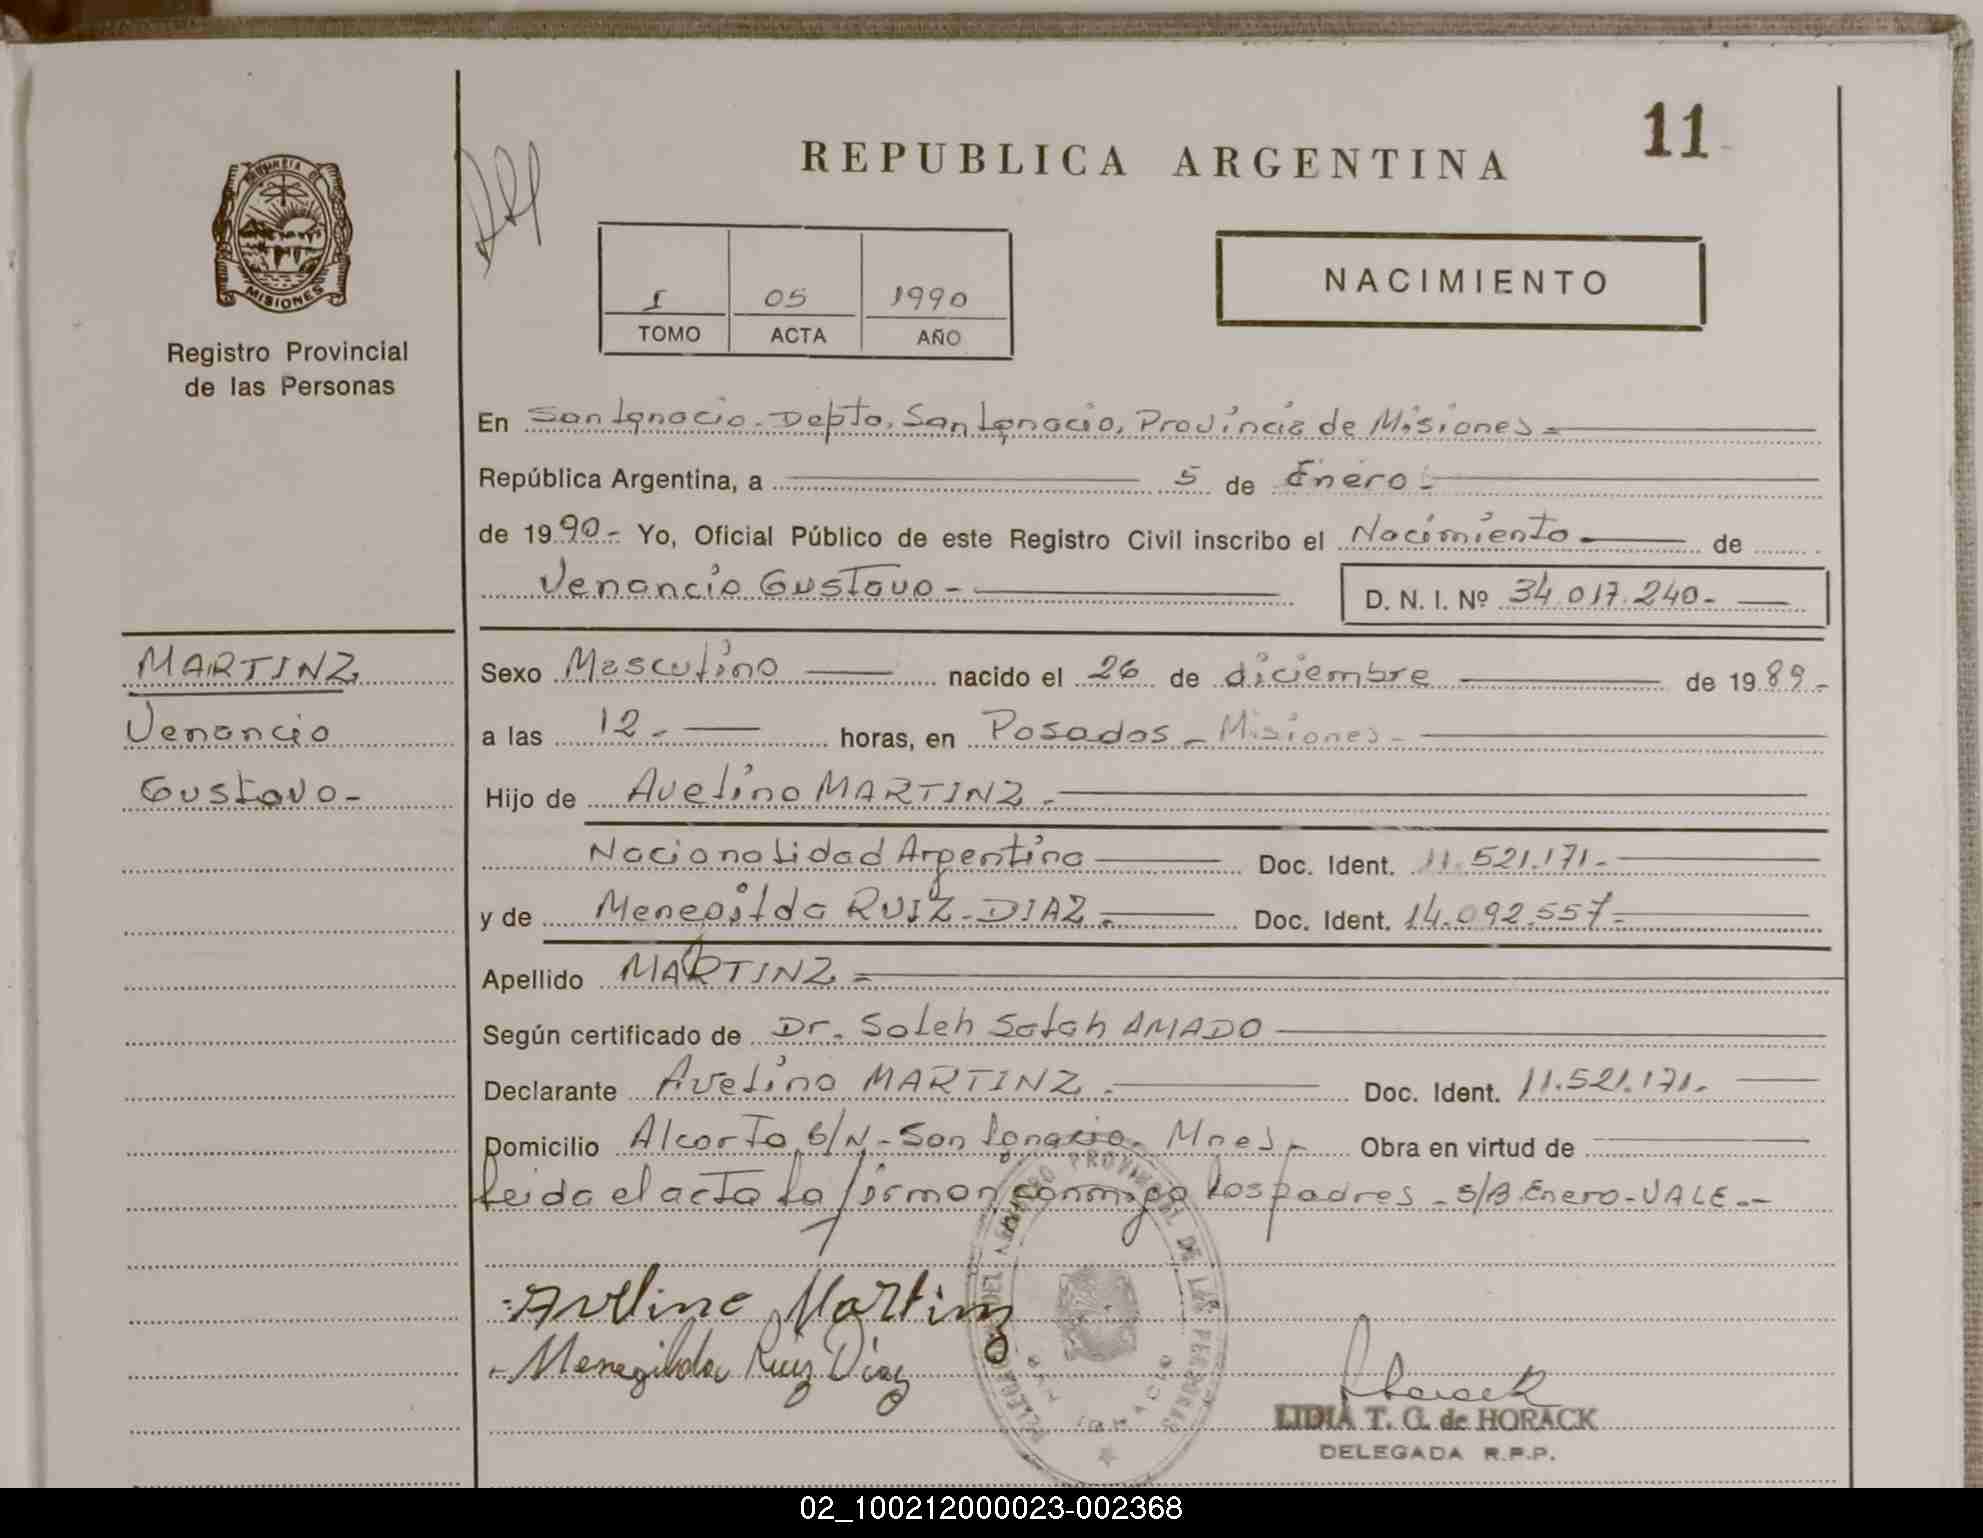 11
REPUBLICA ARGENTINA
PROVINCIA D
MISIONES
Registro Provincial
de las Personas
I 05 1990
TOMO ACTA AÑO
NACIMIENTO
En San Ignacio. Depto. San Ignacio, Provincia de Misiones =
República Argentina, a 5 de Enero -
de 1990.- Yo, Oficial Público de este Registro Civil inscribo el Nacimiento de
Venancio Gustavo - D. N. I. Nº 34.017.240-
MARTINZ
Venancio
Gustavo-
Sexo Masculino nacido el 26 de diciembre de 1989-
a las 12.- horas, en Posadas - Misiones -
Hijo de Avelino MARTINZ.-
Nacionalidad Argentina Doc. Ident. 11.521.171.-
y de Menegilda RUIZ-DIAZ.- Doc. Ident. 14.092.557-
Apellido MARTINZ =
Según certificado de Dr. Saleh Salah AMADO
Declarante Avelino MARTINZ.- Doc. Ident. 11.521.171.
Domicilio Alcorta S/N - San Ignacio. Mnes- Obra en virtud de
leida el acta la firman conmigo los padres - S/B Enero-VALE.-
DELEGACION DEL REGISTRO PROVINCIAL DE LAS PERSONAS
SAN IGNACIO
Aveline Martinz
Menegilda Ruiz Diaz
LIDIA T. G. de HORACK
DELEGADA R.P.P.
02_100212000023-002368